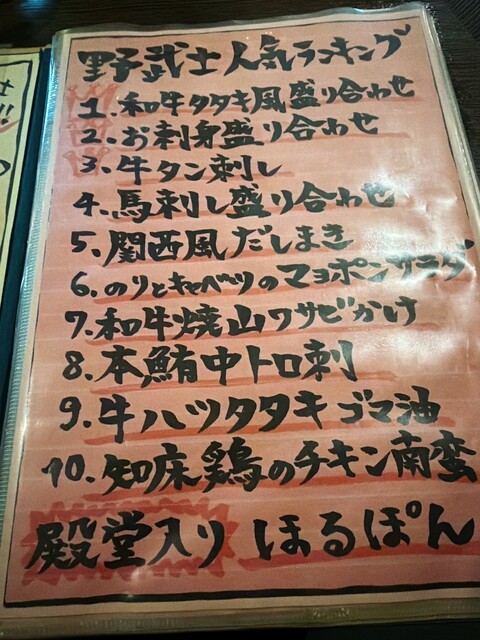 野武士人気ランキング
1. 和牛タタキ風盛り合わせ
2. お刺身盛り合わせ
3. 牛タン刺し
4. 馬刺し盛り合わせ
5. 関西風だしまき
6. のりとキャベツのマヨポンサラダ
7. 和牛焼山ワサビかけ
8. 本鮪中トロ刺
9. 牛ハツタタキゴマ油
10. 知床鶏のチキン南蛮
殿堂入り ほるぽん